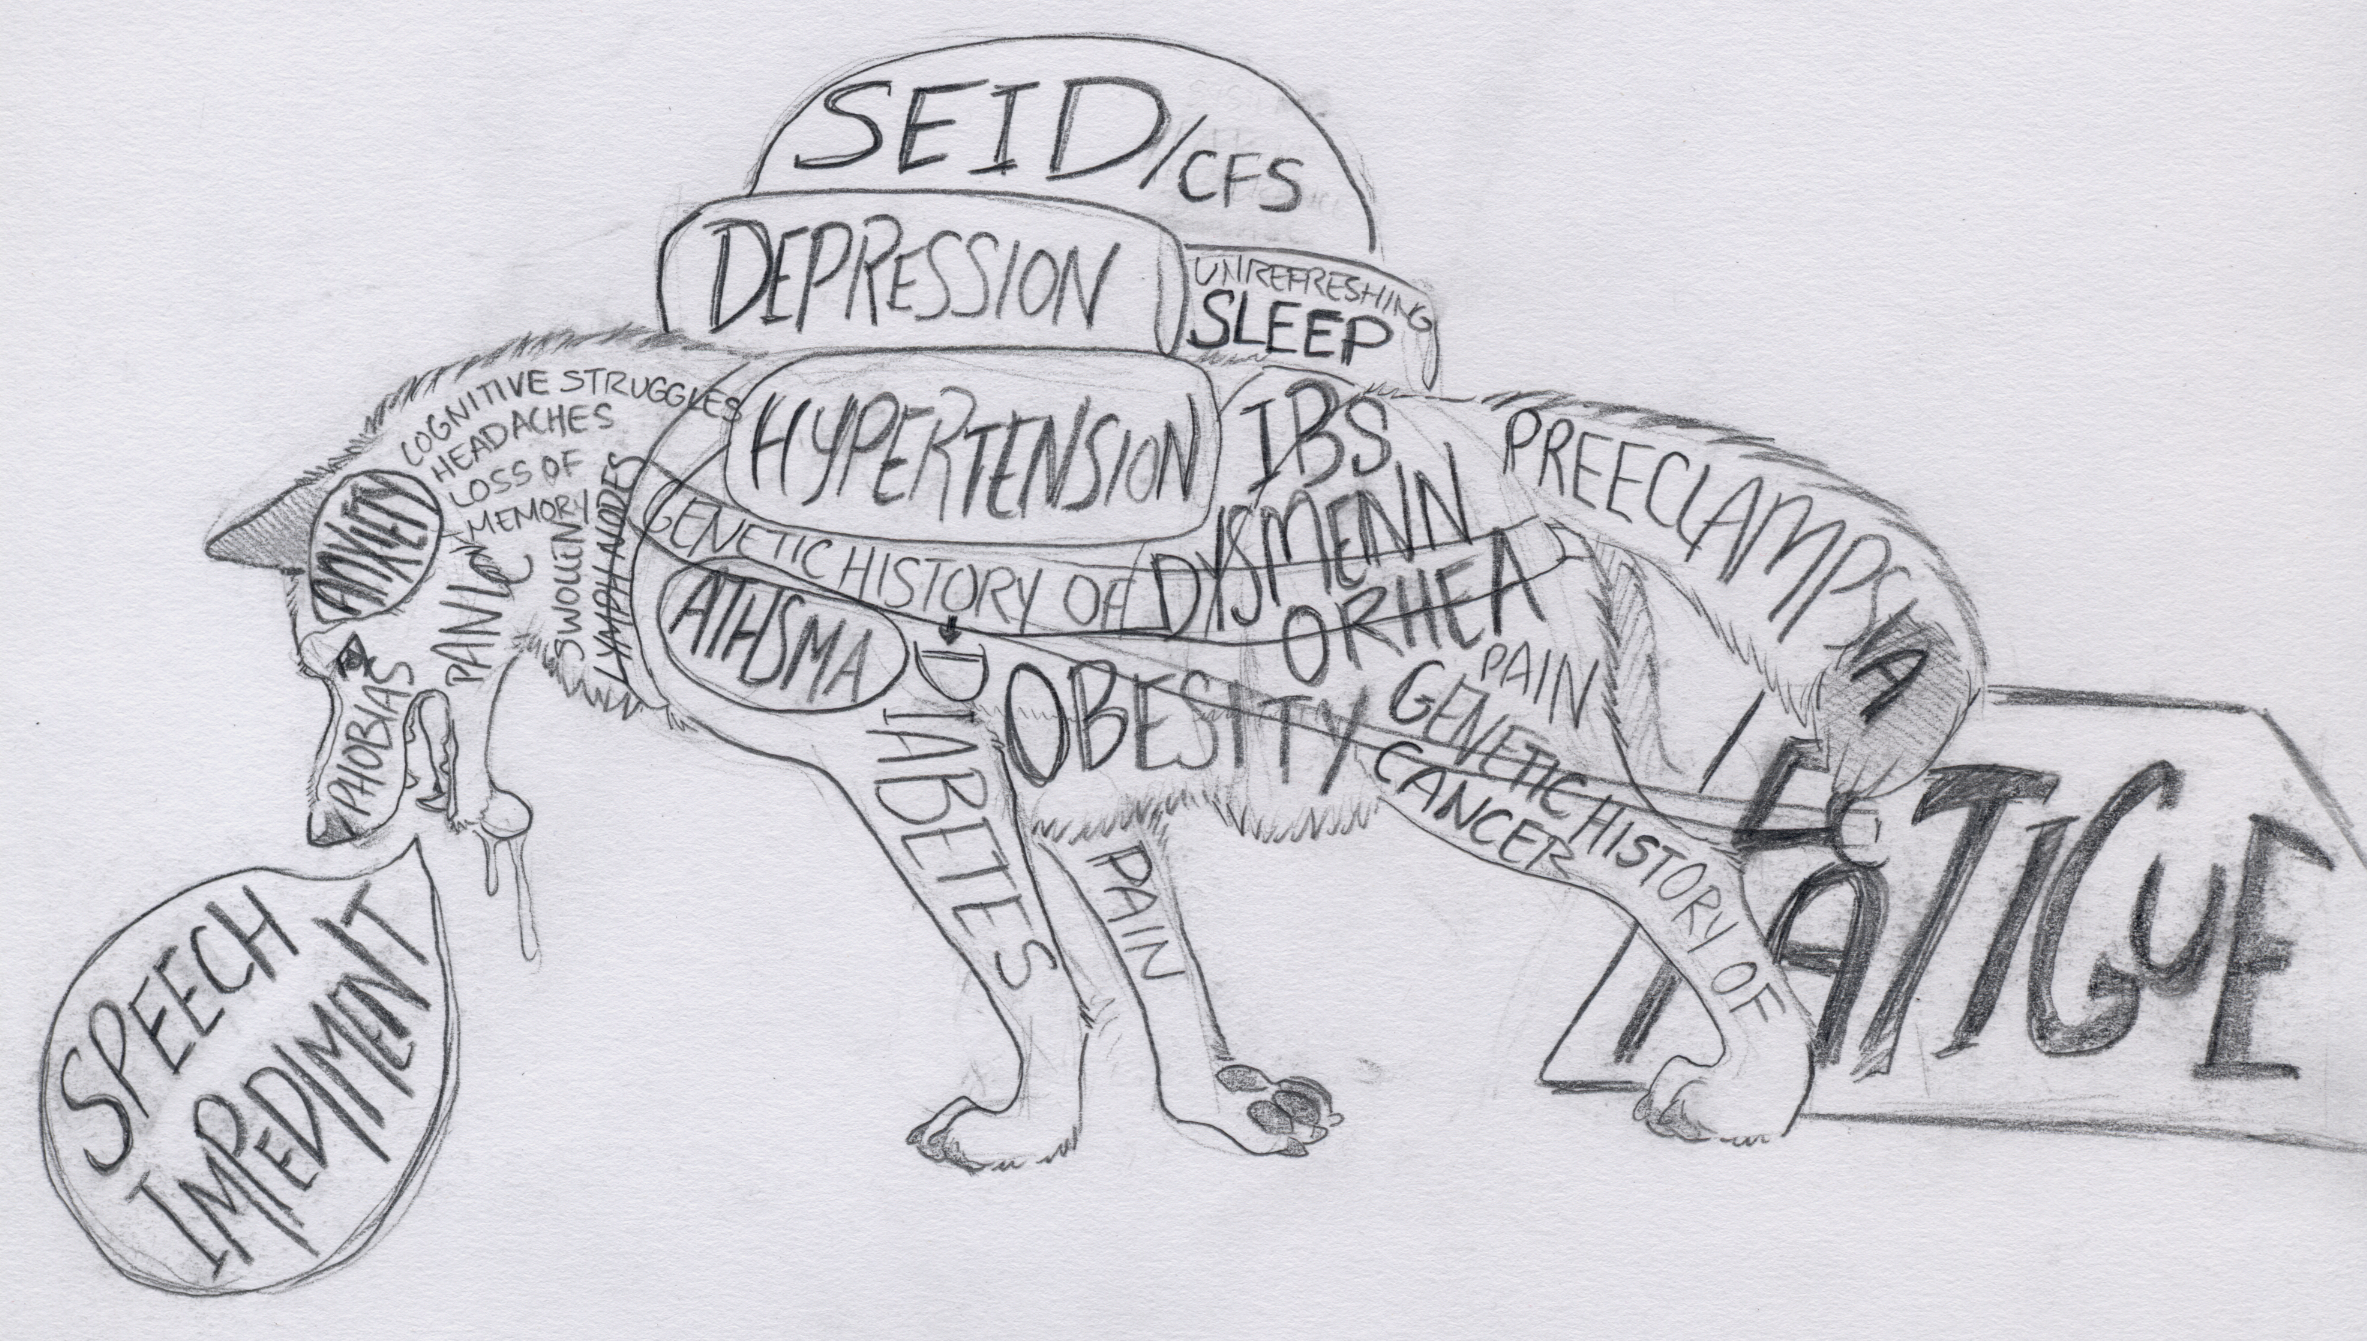 SEID/CFS
DEPRESSION
UNREFRESHING
SLEEP
COGNITIVE STRUGGLES
HEADACHES
LOSS OF
MEMORY
ANXIETY
PANIC
SWOLLEN
LYMPH NODES
PHOBIAS
HYPERTENSION
IBS
DYSMENN
ORHEA
PAIN
PREECLAMPSIA
GENETIC HISTORY OF
ATHSMA
DIABETES
OBESITY
GENETIC HISTORY OF
CANCER
PAIN
FATIGUE
SPEECH
IMPEDIMENT